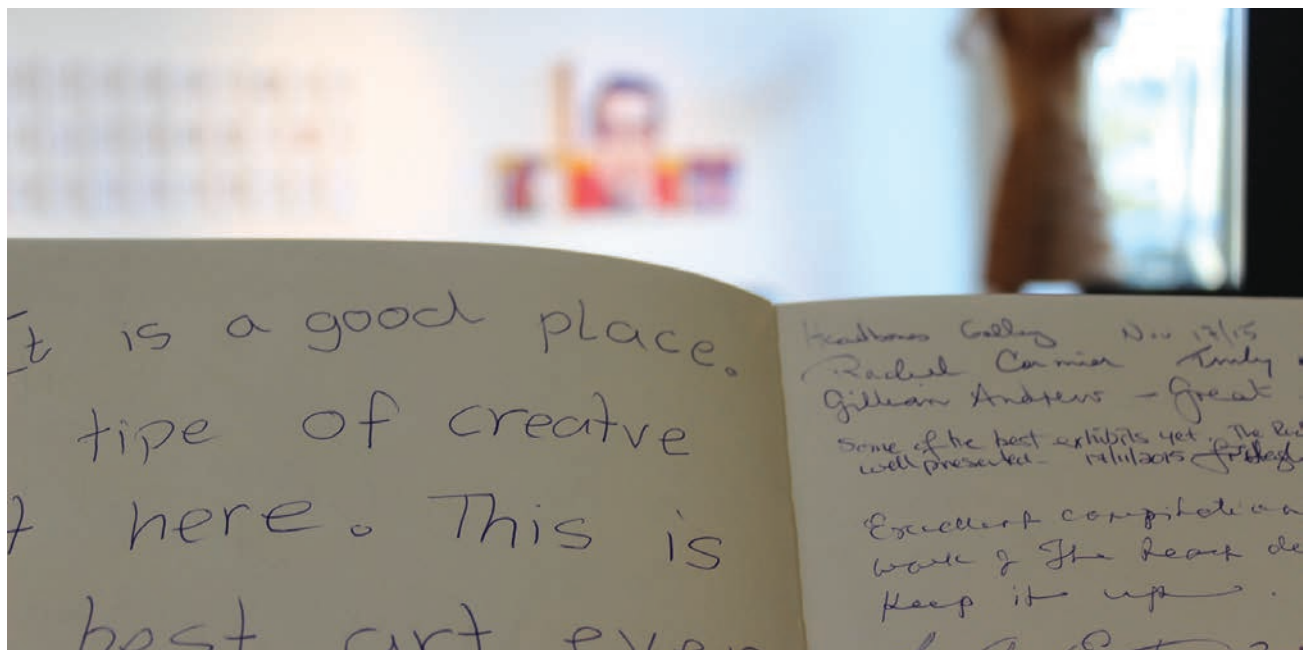 It is a good place.
tipe of creatve
here. This is
best art ever
Gallery Nov 17/15
Rachel Cormier
Gillian Andrew - Great
Some of the best exhibits yet. The
well presented - 2015
Excellent compilation
work of The Reach
Keep it up.